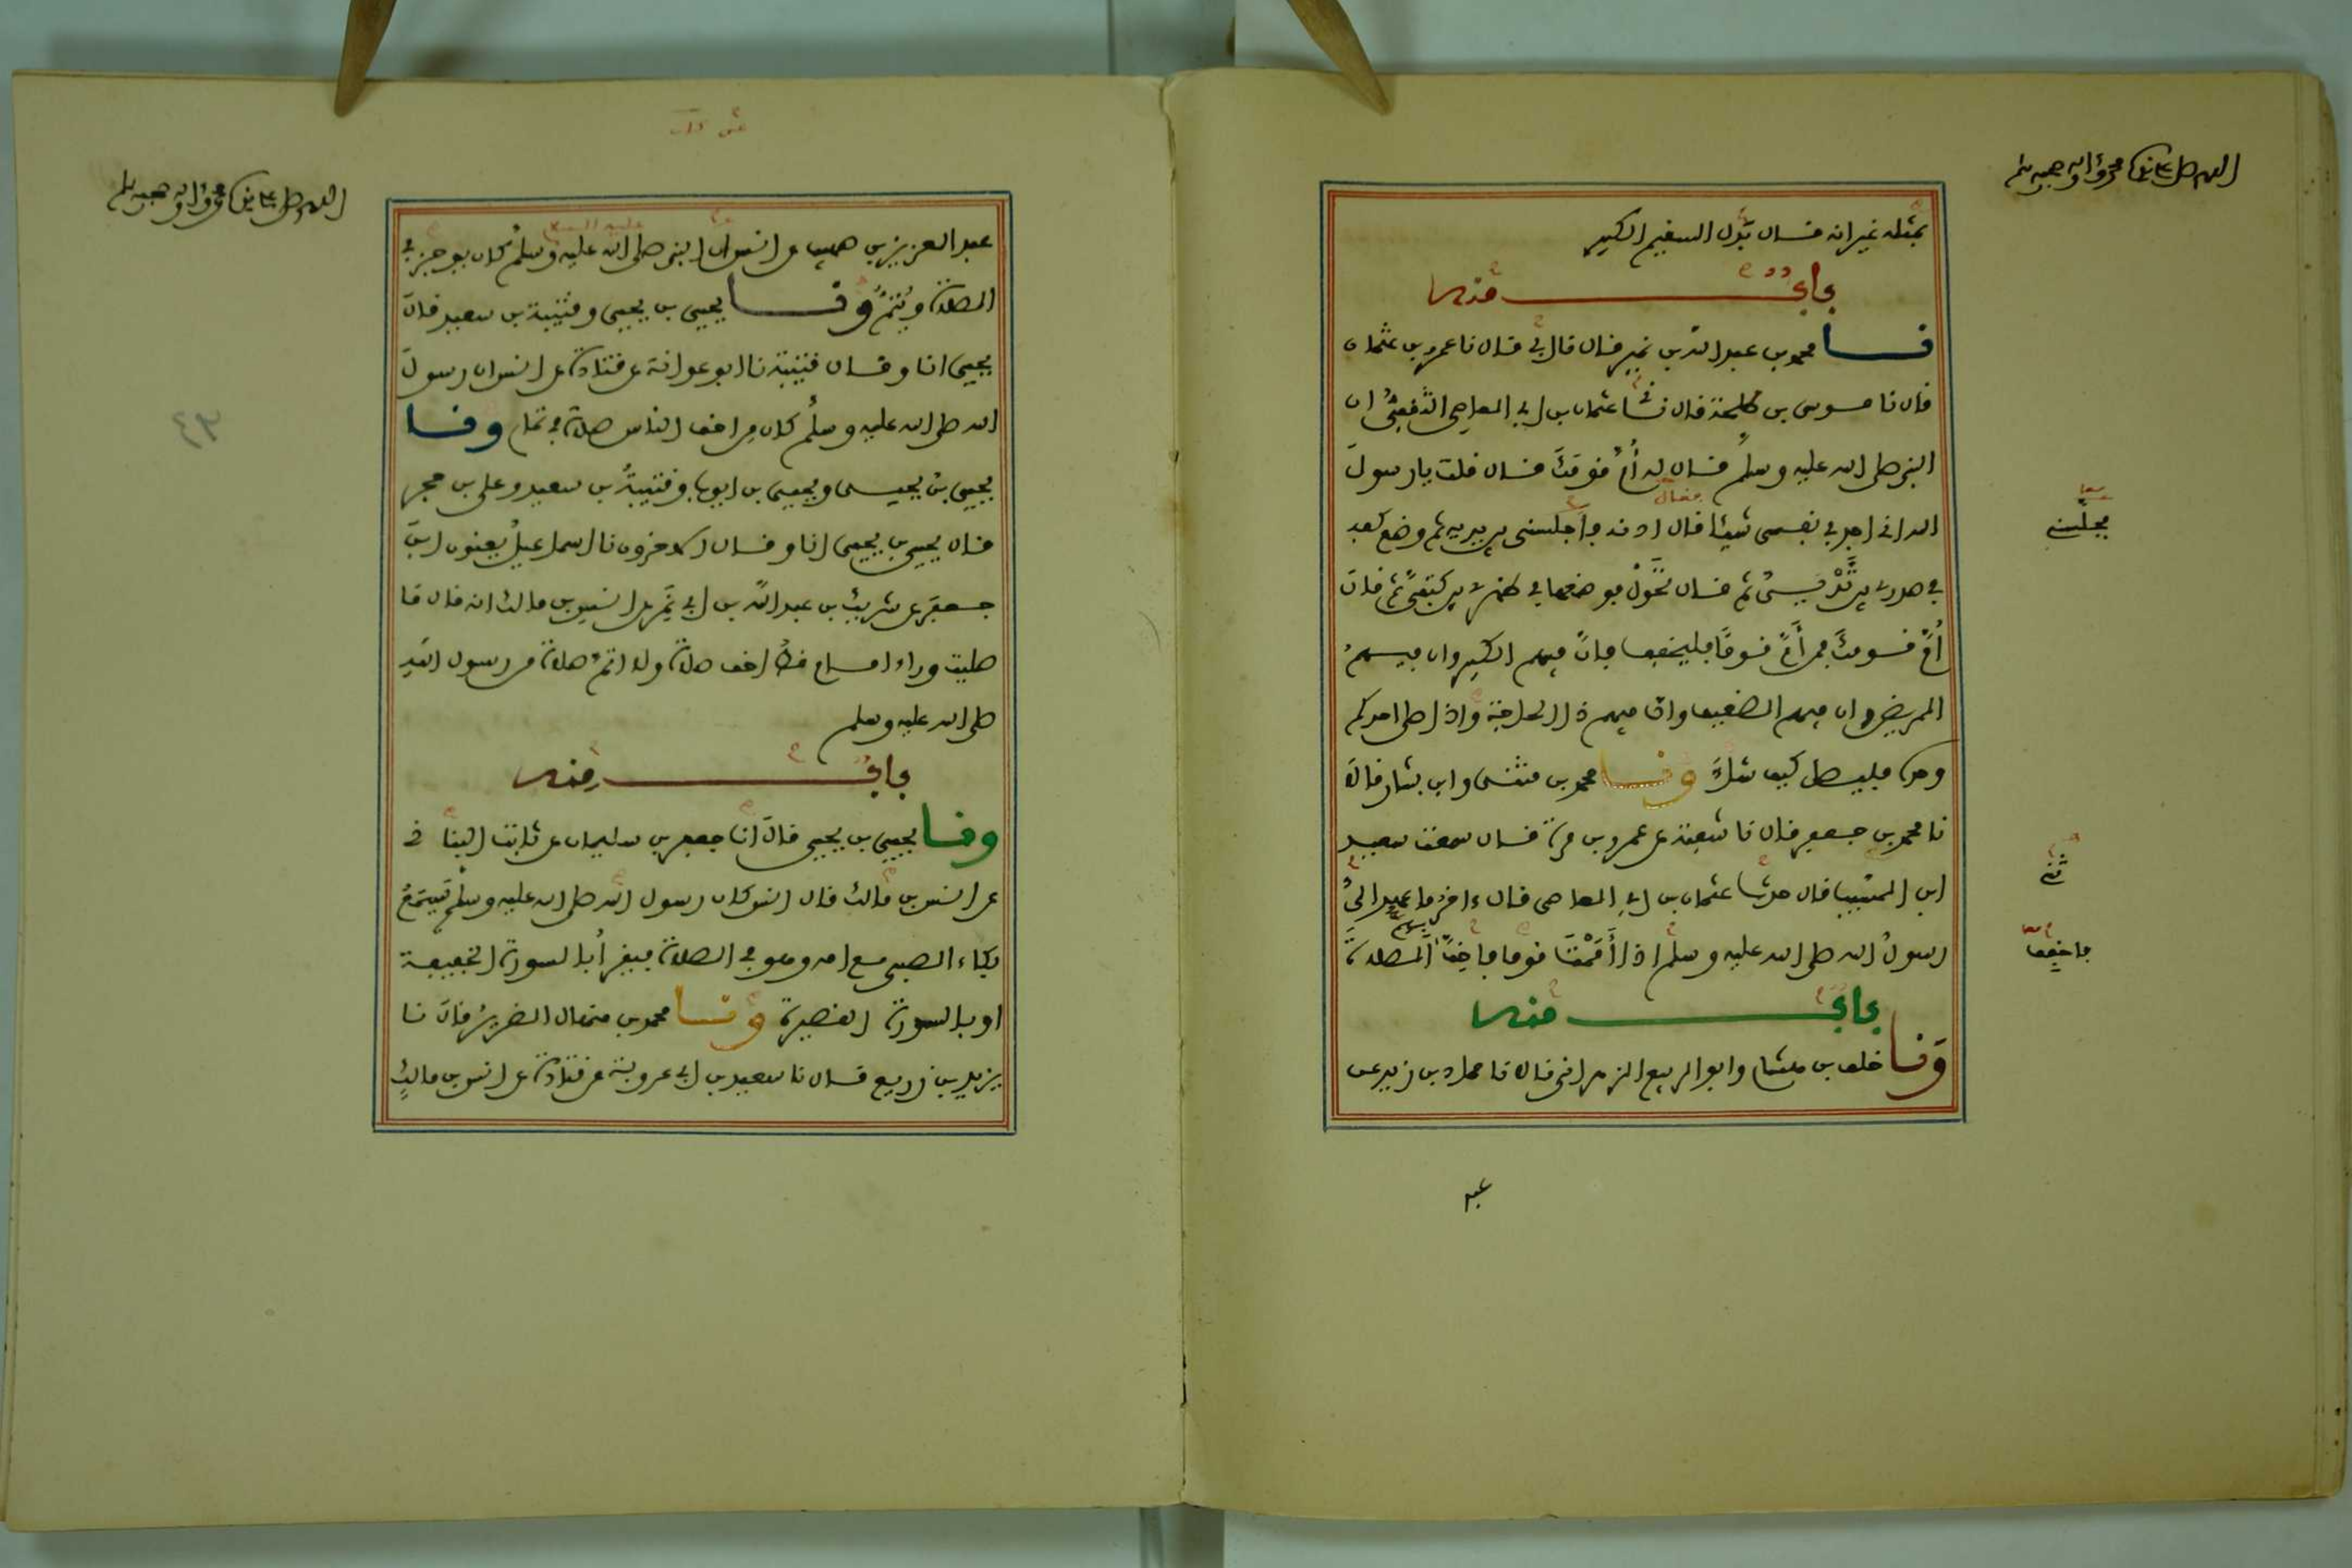 اللهم صل على سيدنا محمد وءاله وصحبه وسلم
بمثله غير انه قال بدل السقيم الكبير
باب منه
نا محمد بن عبد الله بن نمير قال نا ابي قال نا عمرو بن عثمان
قال نا موسى بن طلحة قال ثني عثمان بن ابي العاصي الثقفي ان
النبي صلى الله عليه وسلم قال له أم قومك قال قلت يا رسول
الله اني اجد في نفسي شيئا قال ادنه فاجلسني بين يديه ثم وضع كفه
في صدري بين ثديي ثم قال تحول فوضعها في ظهري بين كتفي ثم قال
أم قومك فمن أم قوما فليخفف فان فيهم الكبير وان فيهم
المريض وان فيهم الضعيف وان فيهم ذا الحاجة واذا صلى احدكم
وحده فليصل كيف شاء ونا محمد بن مثنى وابن بشار قالا
نا محمد بن جعفر قال نا شعبة عن عمرو بن مرة قال سمعت سعيد
ابن المسيب قال حدث عثمان بن ابي العاصي قال ءاخر ما عهد الي
رسول الله صلى الله عليه وسلم اذا أممت قوما فاخف بهم الصلاة
باب منه
ونا خلف بن هشام وابو الربيع الزهراني قالا نا حماد بن زيد عن
فقال
معا
يجلسني
ثني
فاخفف
عبد
اللهم صل على سيدنا محمد وءاله وصحبه وسلم
عليه السلام
عبد العزيز بن صهيب عن انس ان النبي صلى الله عليه وسلم كان يوجز في
الصلاة ويتم ونا يحيى بن يحيى وقتيبة بن سعيد قال
يحيى انا وقال قتيبة نا ابو عوانة عن قتادة عن انس ان رسول
الله صلى الله عليه وسلم كان من اخف الناس صلاة في تمام ونا
يحيى بن يحيى ويحيى بن ايوب وقتيبة بن سعيد وعلي بن حجر
قال يحيى بن يحيى انا وقال الاخرون نا اسماعيل يعنون ابن
جعفر عن شريك بن عبد الله بن ابي نمر عن انس بن مالك انه قال ما
صليت وراء امام قط اخف صلاة ولا اتم صلاة من رسول الله
صلى الله عليه وسلم
باب منه
ونا يحيى بن يحيى قال انا جعفر بن سليمان عن ثابت البناني
عن انس بن مالك قال انس كان رسول الله صلى الله عليه وسلم يسمع
بكاء الصبي مع امه وهو في الصلاة فيقرأ بالسورة الخفيفة
او بالسورة القصيرة ونا محمد بن منهال الضرير قال نا
يزيد بن زريع قال نا سعيد بن ابي عروبة عن قتادة عن انس بن مالك
٤٣